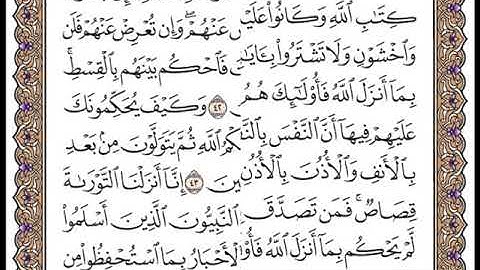 كِتَٰبِ ٱللَّهِ وَكَانُوا۟ عَلَيْـ عَنْهُمْ ۖ وَإِن تُعْرِضْ عَنْهُمْ فَلَن
وَٱخْشَوْنِ وَلَا تَشْتَرُوا۟ بِـَٔايَٰتِـ فَٱحْكُم بَيْنَهُم بِٱلْقِسْطِ ۚ
بِمَآ أَنزَلَ ٱللَّهُ فَأُو۟لَٰٓئِكَ هُمُ ٤٢ وَكَيْفَ يُحَكِّمُونَكَ
عَلَيْهِمْ فِيهَآ أَنَّ ٱلنَّفْسَ بِٱلنَّـ ـكْمُ ٱللَّهِ ثُمَّ يَتَوَلَّوْنَ مِنۢ بَعْدِ
بِٱلْأَنفِ وَٱلْأُذُنَ بِٱلْأُذُنِ ـينَ ٤٣ إِنَّآ أَنزَلْنَا ٱلتَّوْرَىٰةَ
قِصَاصٌ ۚ فَمَن تَصَدَّقَ ٱلنَّبِيُّونَ ٱلَّذِينَ أَسْلَمُوا۟
لَّمْ يَحْكُم بِمَآ أَنزَلَ ٱللَّهُ فَأُو۟ لْأَحْبَارُ بِمَا ٱسْتُحْفِظُوا۟ مِن